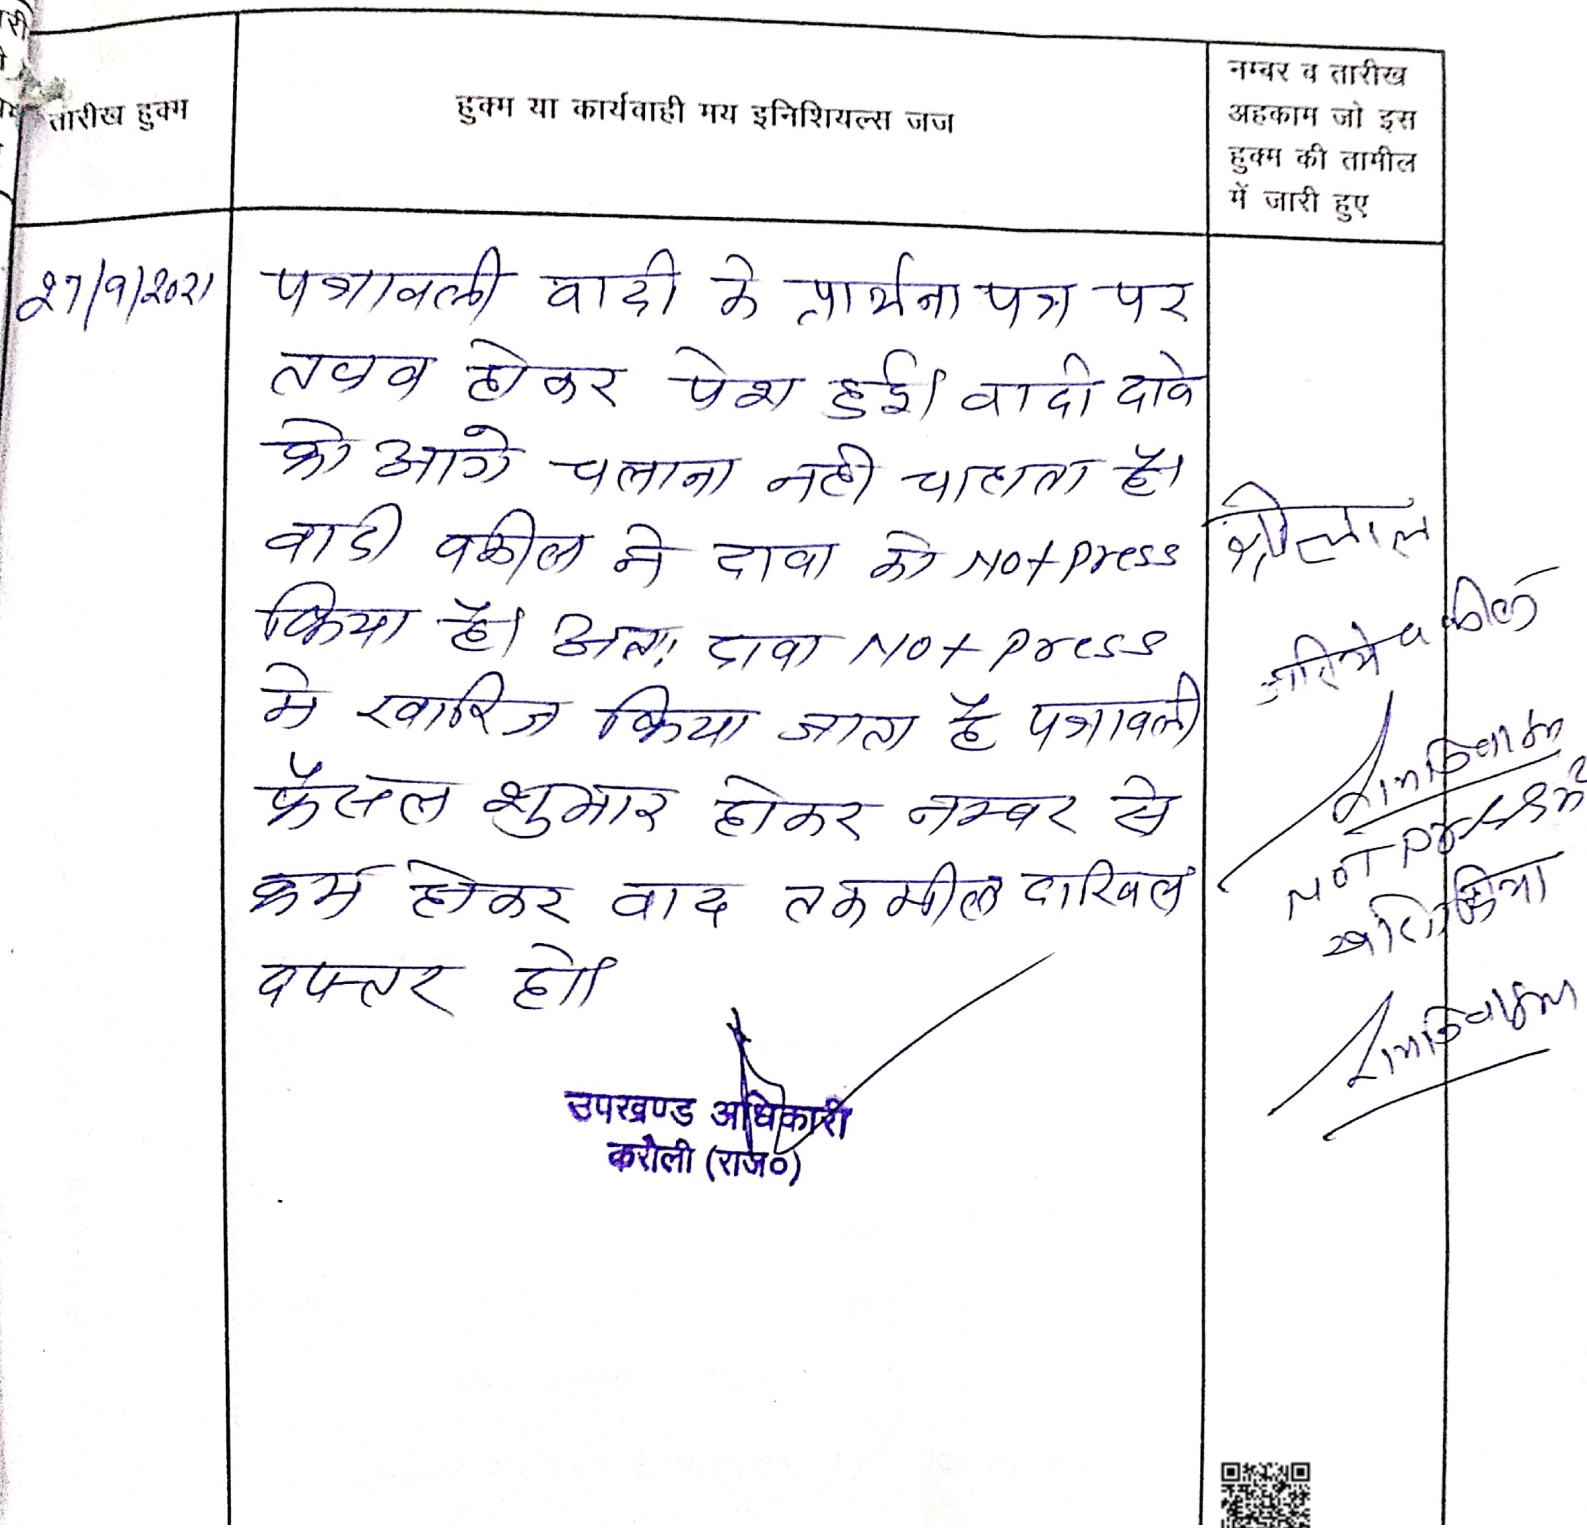 तारीख हुक्म
हुक्म या कार्यवाही मय इनिशियल्स जज
नम्बर व तारीख
अहकाम जो इस
हुक्म की तामील
में जारी हुए
27/9/2021
पत्रावली वादी के प्रार्थना पत्र पर
तलब होकर पेश हुई। वादी दावे
को आगे चलाना नही चाहता है।
वादी वकील ने दावा को Not press
किया है। अतः दावा Not press
मे खारिज किया जाता है पत्रावली
फैसल शुमार होकर नम्बर से
कम होकर बाद तकमील दाखिल
दफ्तर हो।
उपखण्ड अधिकारी
करौली (राज०)
श्रीलाल
जरिये वकील
NOT press में